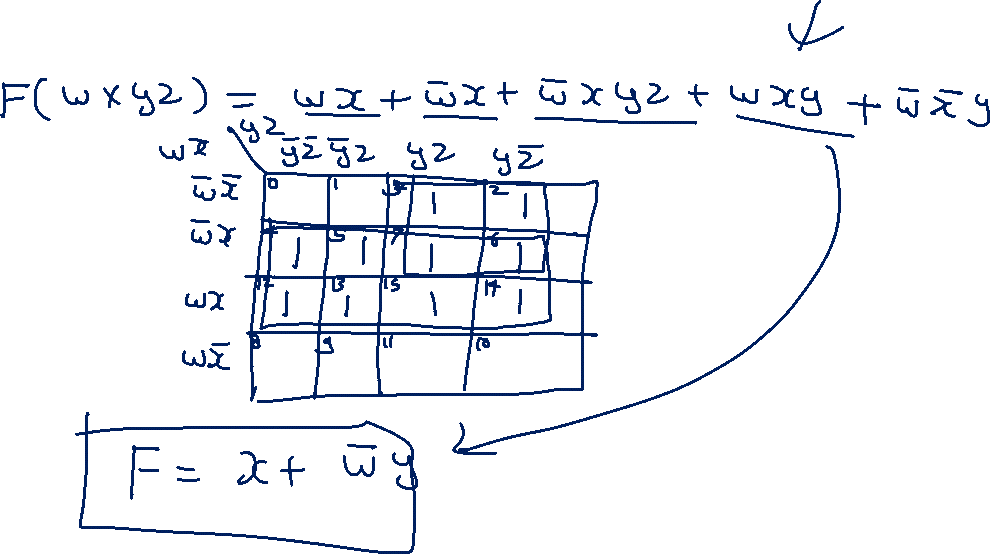 F(wxyz) = wx + w̅x + w̅xyz + wxy + w̅x̅y
yz
wx y̅z̅ y̅z yz yz̅
w̅x̅ 0 1 3 1 2 1
w̅x 1 5 1 7 1 6 1
wx 12 1 13 1 15 1 14 1
wx̅ 8 9 11 10
F = x + w̅y